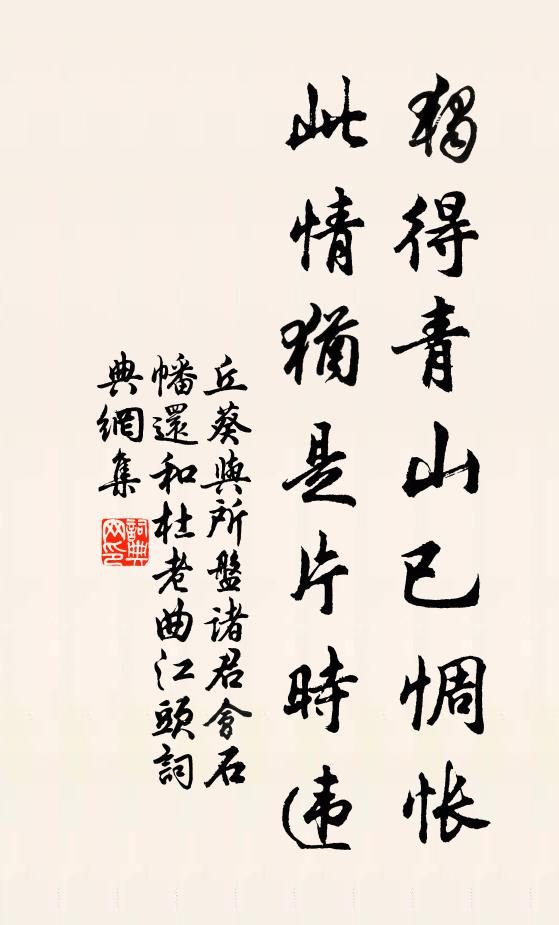 獨得青山已惆怅
此情猶是片時违
丘葵與所盤諸君會石
幡還和杜老曲江頭詞
典網集
詞典
网印